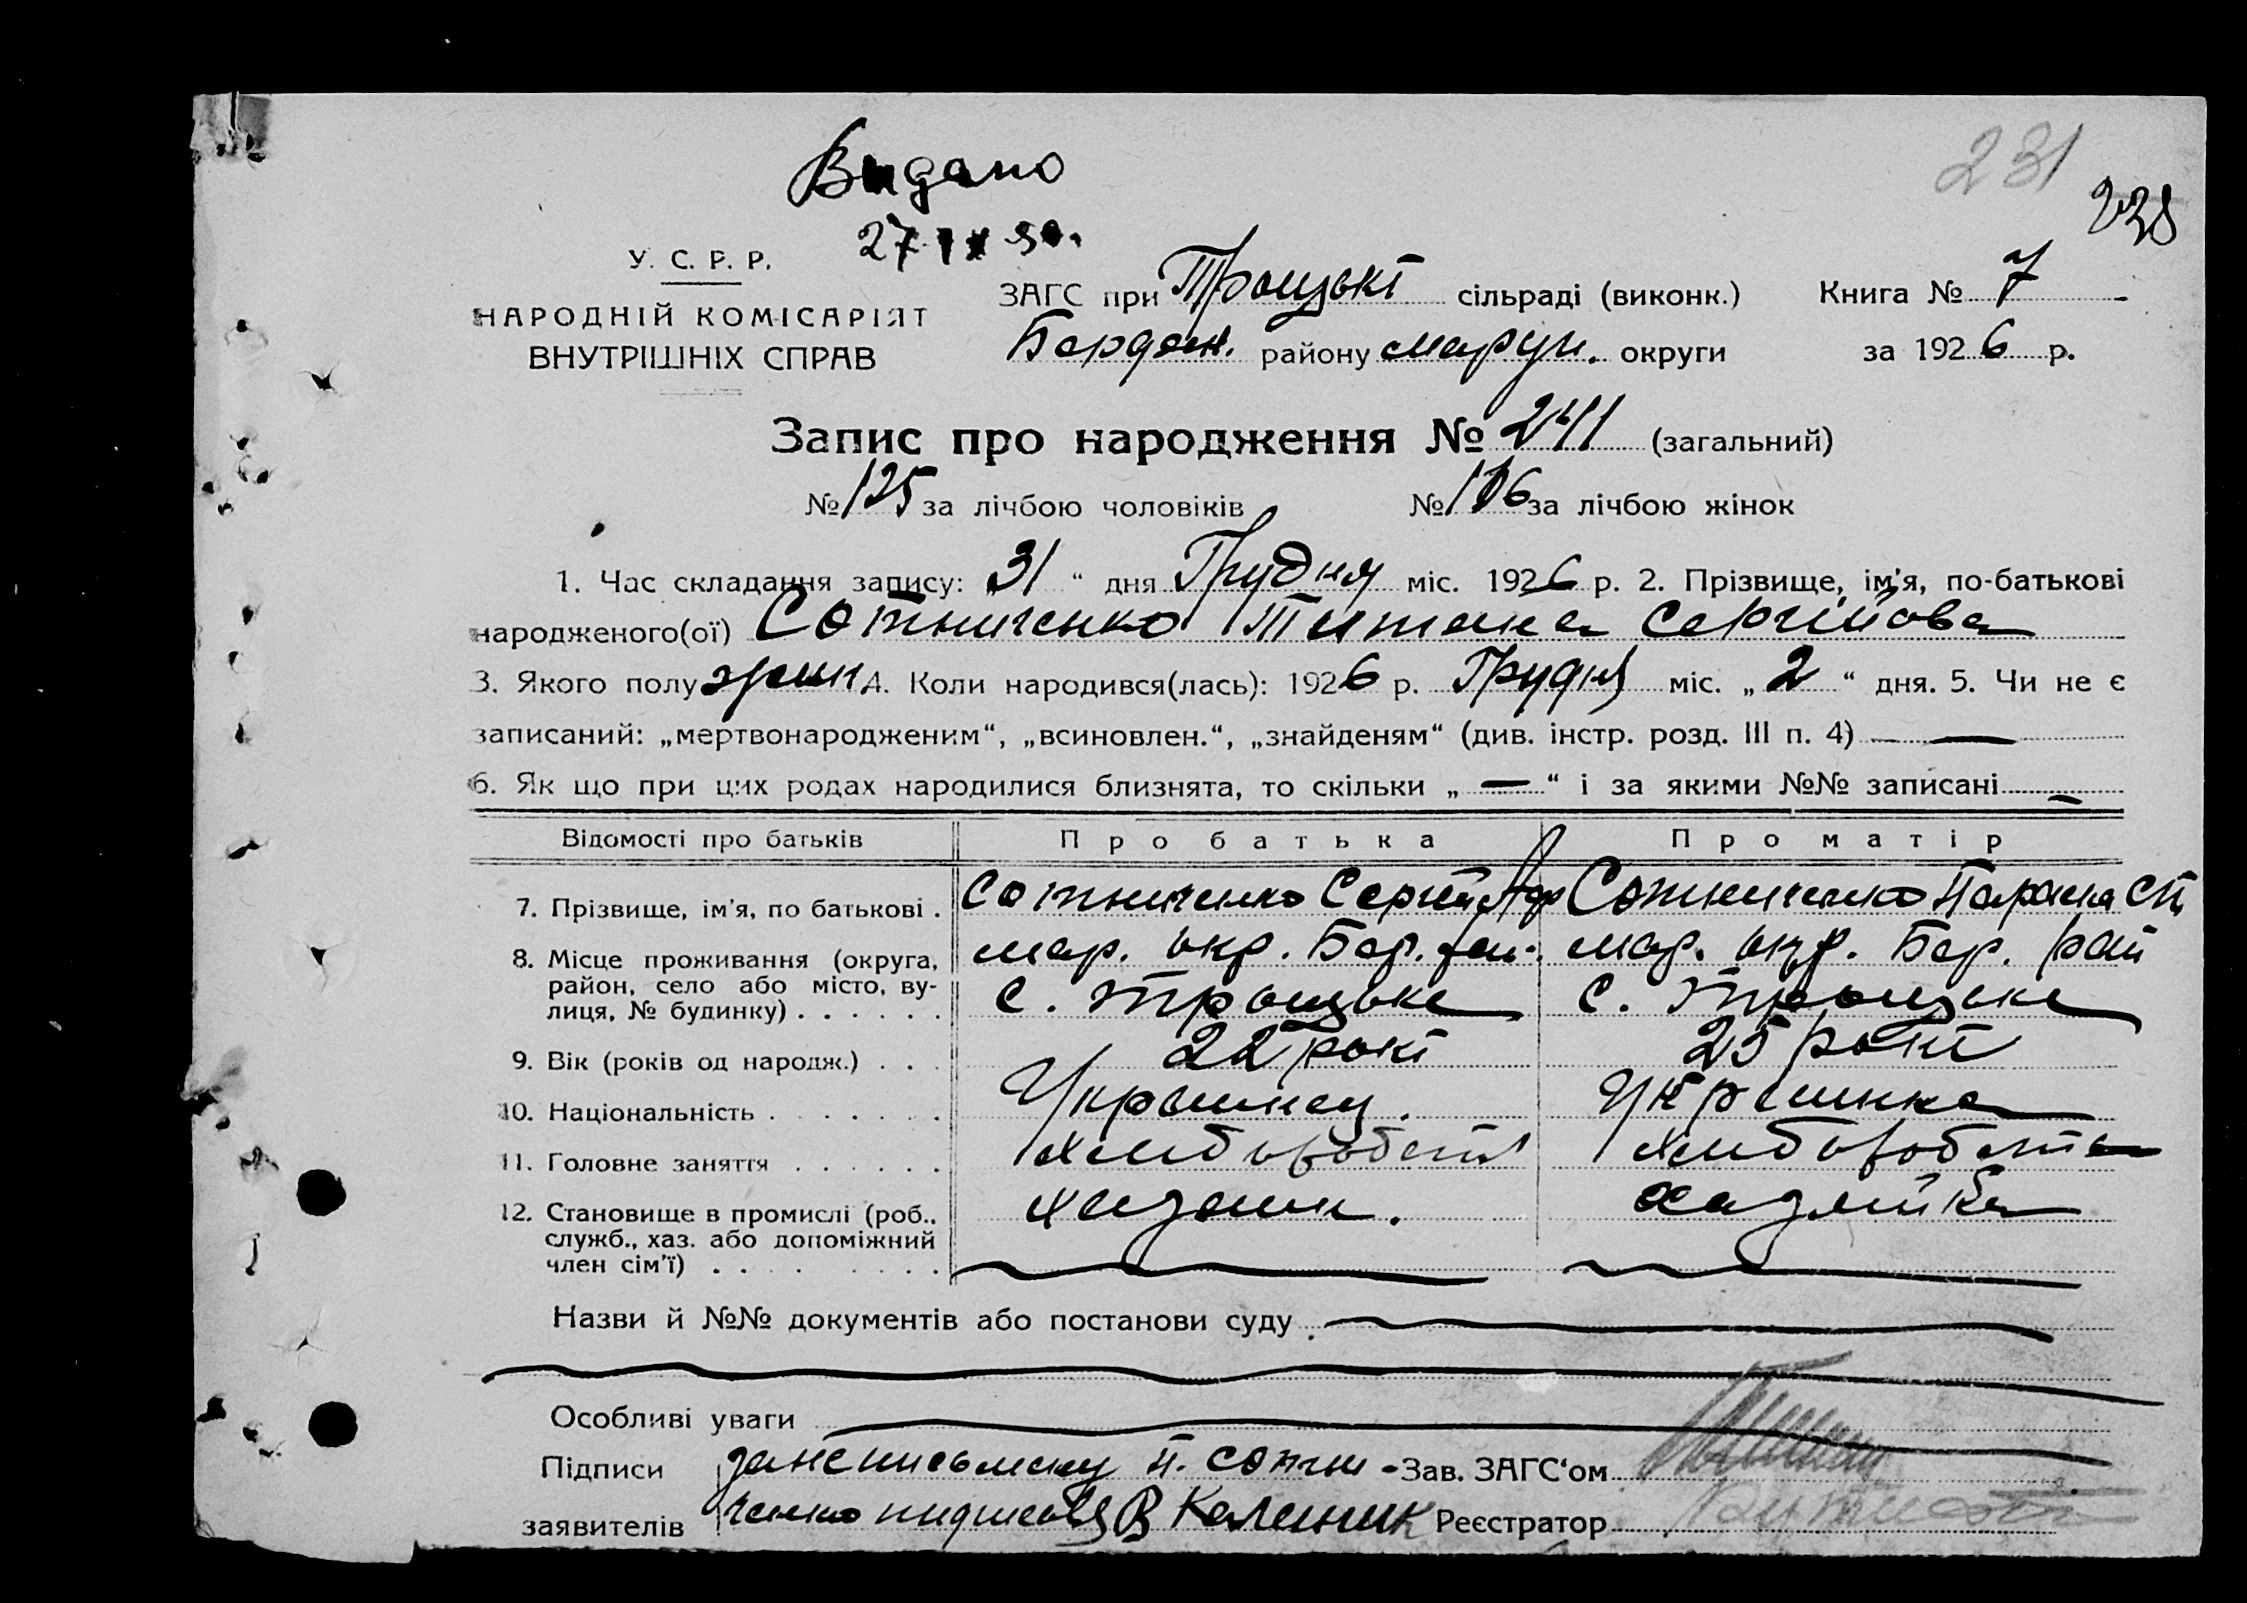 231
Видано
238
27 IX 30.
У. С. Р. Р.
ЗАГС при Троцькі сільраді (виконк.) Книга № 7
НАРОДНІЙ КОМІСАРІЯТ
ВНУТРІШНІХ СПРАВ
Бердян. району Маруп. округи за 1926 р.
Запис про народження № 241 (загальний)
№ 125 за лічбою чоловіків № 116 за лічбою жінок
1. Час складання запису: „31“ дня Грудня міс. 1926 р. 2. Прізвище, ім'я, по-батькові
народженого(ої) Сотниченко Титяна Сергійова
3. Якого полу жин 4. Коли народився(лась): 1926 р. Грудня міс. „2“ дня. 5. Чи не є
записаний: „мертвонародженим“, „всиновлен.“, „знайденям“ (див. інстр. розд. III п. 4) —
6. Як що при цих родах народилися близнята, то скільки „—“ і за якими №№ записані —
Відомості про батьків Про батька Про матір
7. Прізвище, ім'я, по батькові . Сотниченко Сергій Сотниченко Параска
8. Місце проживання (округа, мар. окр. Бер. рай. мар. окр. Бер. рай
район, село або місто, ву-
лиця, № будинку) . . . . . . с. Троцьке с. Троцьке
9. Вік (років од народж.) . . . 22 рокі 25 рокі
10. Національність . . . . . . . Украинец. Украинка
11. Головне заняття . . . . . . хлибороб хлибороб
12. Становище в промислі (роб., хазяин. хазяйка
служб., хаз. або допоміжний
член сім'ї) . . . . . . . .
Назви й №№ документів або постанови суду
Особливі уваги
Підписи за неписьмену П. Сотни- Зав. ЗАГС'ом
заявителів ченко пидписався В Калениик Реєстратор